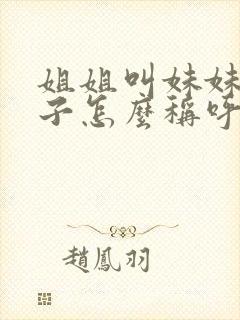 姐姐叫妹妹
子怎麼稱呼
趙鳳羽